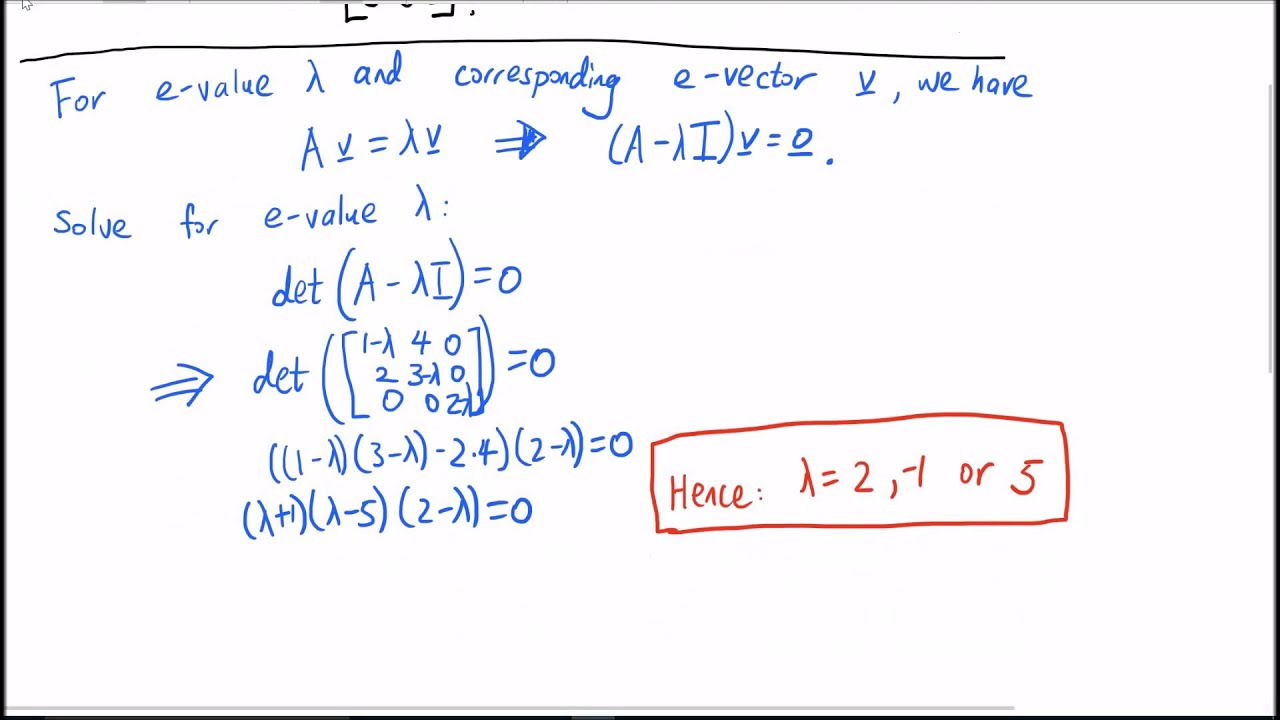 For e-value λ and corresponding e-vector v, we have
A v = λv ⇒ (A-λI)v=0.
Solve for e-value λ:
det(A-λI)=0
⇒ det([1-λ 4 0
2 3-λ 0
0 0 2-λ])=0
((1-λ)(3-λ)-2·4)(2-λ)=0
(λ+1)(λ-5)(2-λ)=0
Hence: λ=2,-1 or 5